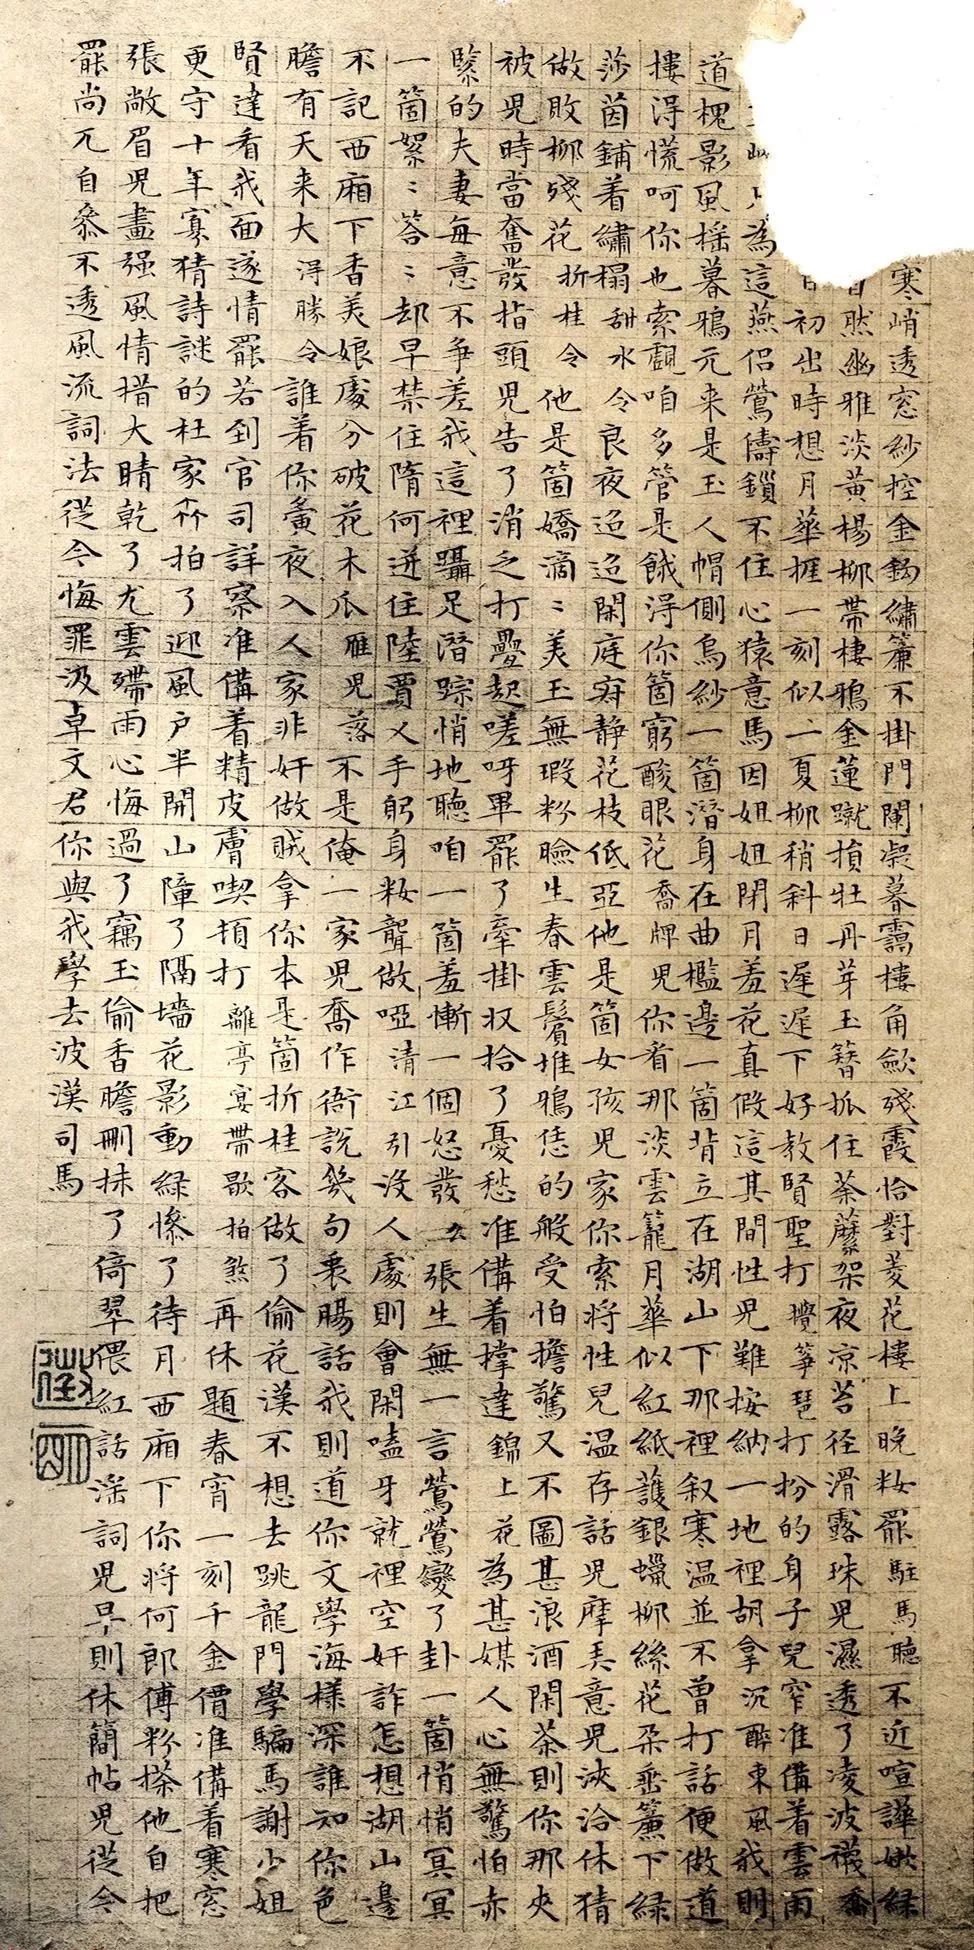 寒峭透窓紗控金鈎繡簾不掛門闌凝暮靄樓角歛殘霞恰對菱花樓上晚粧罷駐馬聽不近喧譁嫩緑
然幽雅淡黃楊柳帶棲鴉金蓮蹴損牡丹芽玉簪抓住荼蘼架夜凉苔径滑露珠兒濕透了凌波襪喬
日初出時想月華捱一刻似一夏柳稍斜日遲遲下好教賢聖打攪箏琶打扮的身子兒窄准備着雲雨
為這燕侶鶯儔鎖不住心猿意馬因姐姐閉月羞花真假這其間性兒難按納一地裡胡拿沉醉東風我則
道槐影風揺暮鴉元来是玉人帽側烏紗一箇潛身在曲檻邊一箇背立在湖山下那裡叙寒温並不曾打話便做道
摟淂慌呵你也索覰咱多管是餓淂你箇窮酸眼花喬牌兒你看那淡雲籠月華似紅紙護銀蠟柳絲花朶垂簾下緑
莎茵鋪着繡榻甜水令良夜迢迢閑庭静花枝低亞他是箇女孩兒家你索将性兒温存話兒摩弄意兒浹洽休猜
做敗柳殘花折桂令他是箇嬌滴〻美玉無瑕粉臉生春雲鬢堆鴉恁的般受怕擔驚又不圖甚浪酒閑茶則你那夾
被兒時當奮發指頭兒告了消乏打疊起嗟呀畢罷了牽掛収拾了憂愁准備着撑達錦上花為甚媒人心無驚怕赤
緊的夫妻每意不争差我這裡躡足潛踪悄地聽咱一箇羞慚一個怒發么張生無一言鶯鶯變了卦一箇悄悄冥冥
一箇絮〻答〻却早禁住隋何迸住陸賈乂手躬身粧聾做啞清江引沒人處則會閑嗑牙就裡空奸詐怎想湖山邊
不記西廂下香美娘處分破花木瓜雁兒落不是俺一家兒喬作衙說幾句衷腸話我則道你文學海様深誰知你色
膽有天来大淂勝令誰着你夤夜入人家非奸做賊拿你本是箇折桂客做了偷花漢不想去跳龍門學騙馬謝少姐
賢達看我面遂情罷若到官司詳察准備着精皮膚喫頓打離亭宴帶歇拍煞再休題春宵一刻千金價准備着寒窓
更守十年寡猜詩謎的杜家拍了迎風户半開山障了隔墻花影動緑慘了待月西廂下你将何郎傅粉搽他自把
張敞眉兒畫强風情措大晴乾了尤雲殢雨心悔過了竊玉偷香膽刪抹了倚翠偎紅話淫詞兒早則休簡帖兒從今
罷尚兀自叅不透風流詞法從今悔罪汲卓文君你與我學去波漢司馬
徵明